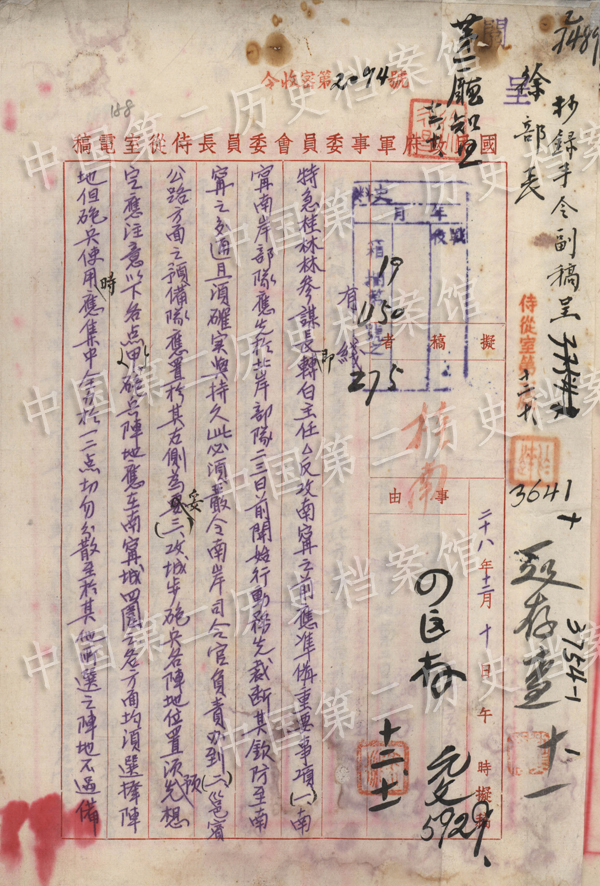 抄錄手令副稿呈
徐部長
呈
閱
侍從室第
3641
37541
四存查
十一
令收密第2094號
第一廳知照
國民政府軍事委員會委員長侍從室電稿
188
史
年 月
箱
19
1150
275
有線
擬稿者
事由
桂南
二十八年十二月十日 午 時擬稿
5929
特急桂林林參謀長即轉白主任△反攻南寧之前應準備重要事項(一)南
寧南岸部隊應先於北岸部隊二三日前開始行動務先截斷其欽防至南
寧之交通且須確實與持久此必須嚴令南岸司令官負責办到(二)邕賓
公路方面之預備隊應置於其左側為妥(三)攻城步砲兵各陣地位置須預先想
定應注意以下各点(甲)砲兵陣地應在南寧城四圍之各方面均須選擇陣
地但砲兵使用時應集中全力於一二点切勿分散至於其他所選之陣地不過備
中国第二历史档案馆